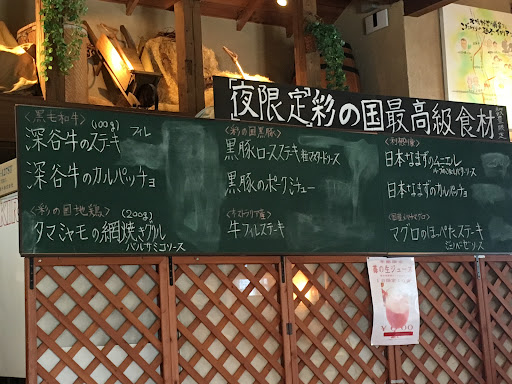 [夜限定]彩の国最高級食材
<黒毛和牛>
(100g) フィレ
深谷牛のステーキ
深谷牛のカルパッチョ
<彩の国地鶏>
(200g)
タマシャモの網焼きグリル
バルサミコソース
<彩の国黒豚>
黒豚ロースステーキ 粒マスタードソース
黒豚のポークシチュー
<オーストラリア産>
牛フィレステーキ
日本なまずのムニエル
日本なまずのカルパッチョ
マグロのほっぺたステーキ
ジンジャーソース
苺の生ジュース